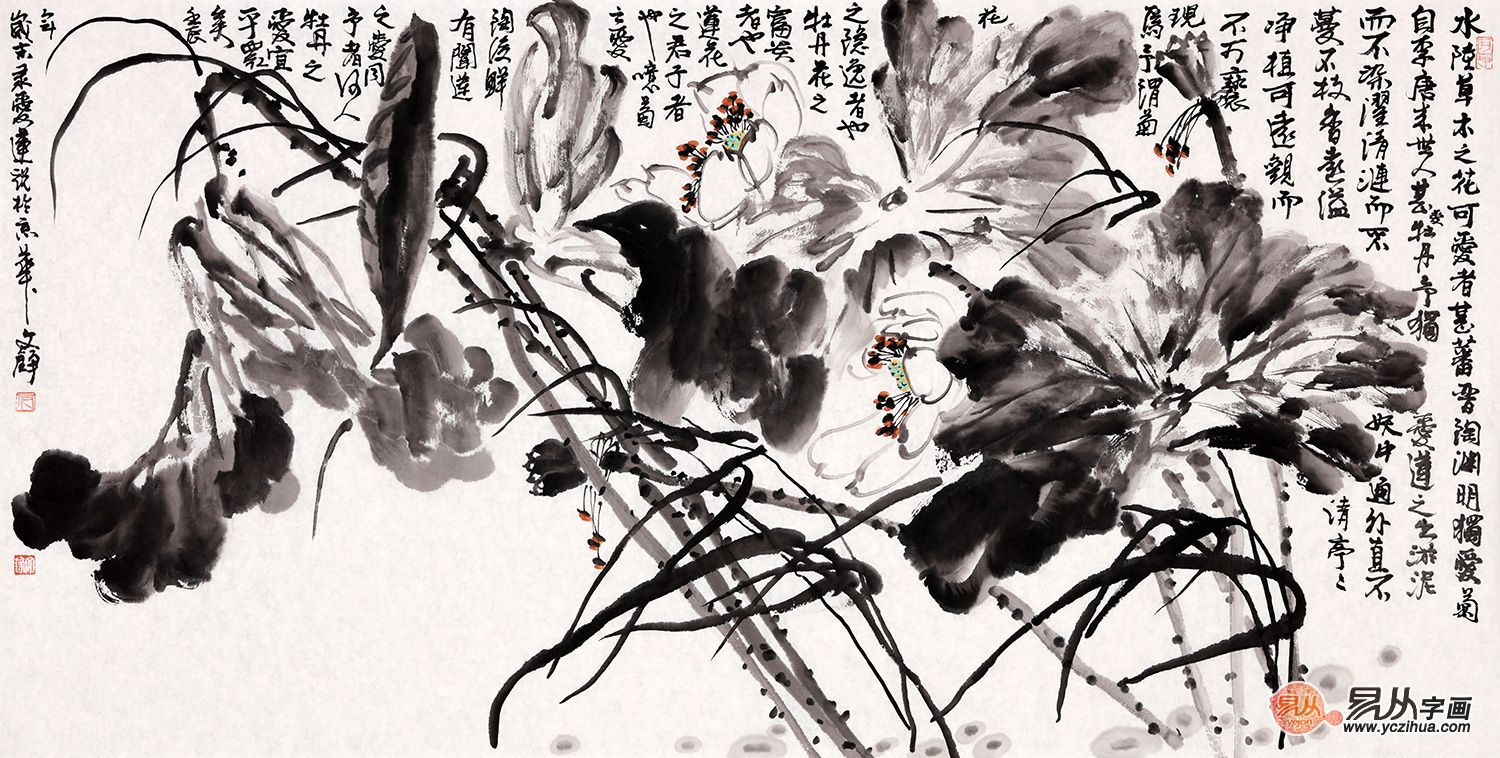 水陸草木之花可愛者甚蕃晋陶渊明獨愛菊
自李唐来世人甚愛牡丹予獨愛蓮之出淤泥
而不染濯清漣而不妖中通外直不
蔓不枝香遠溢清亭〻
净植可遠觀而
不可褻
現
焉予謂菊
花
之隐逸者也
牡丹花之
富貴
者也
蓮花
之君子者
也噫菊
之愛
陶後鮮
有聞蓮
之愛同
予者何人
牡丹之
愛宜
乎衆
矣
壬辰
年
歲末录愛蓮説於京華 文静
易从字画
www.yczihua.com